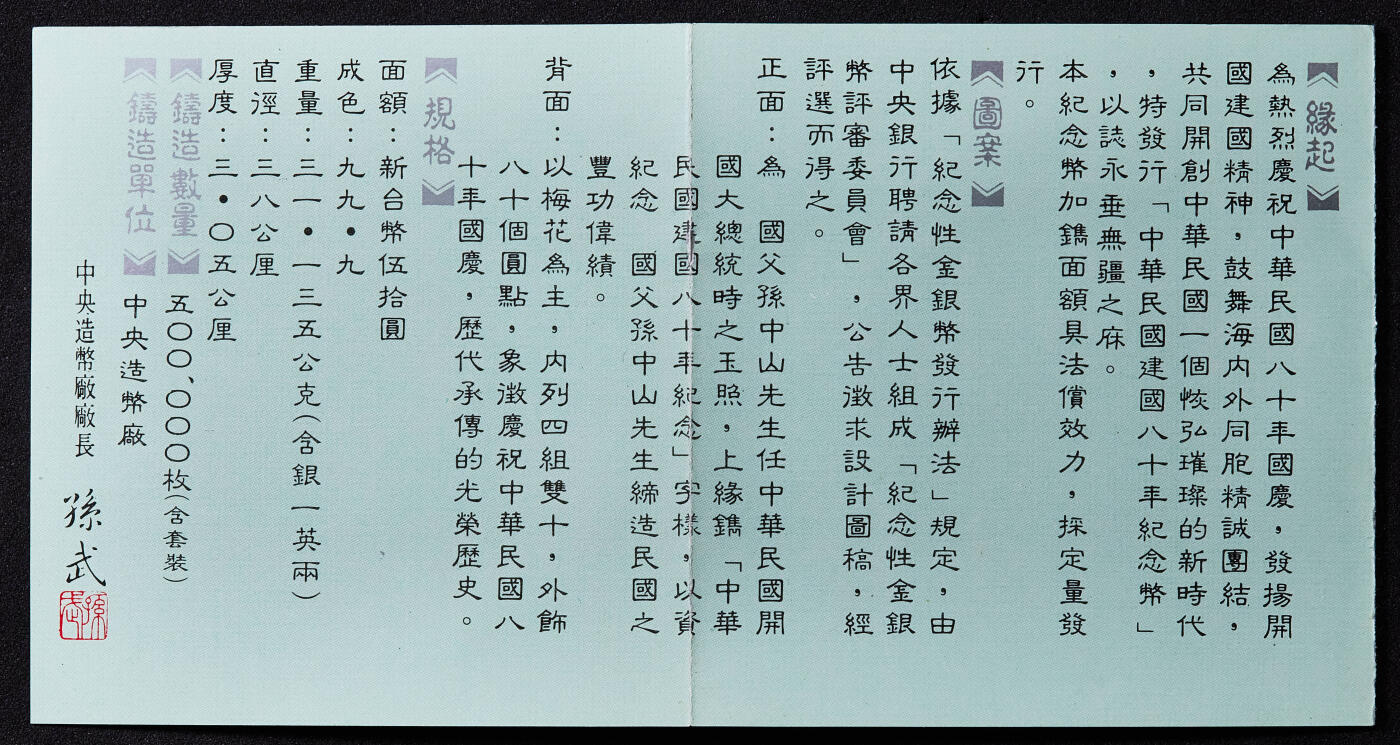 緣起
為熱烈慶祝中華民國八十年國慶，發揚開
國建國精神，鼓舞海內外同胞精誠團結，
共同開創中華民國一個恢弘璀璨的新時代
，特發行「中華民國建國八十年紀念幣」
，以誌永垂無疆之庥。
本紀念幣加鐫面額具法償效力，採定量發
行。
圖案
依據「紀念性金銀幣發行辦法」規定，由
中央銀行聘請各界人士組成「紀念性金銀
幣評審委員會」，公告徵求設計圖稿，經
評選而得之。
正面：為　國父孫中山先生任中華民國開
國大總統時之玉照，上緣鐫「中華
民國建國八十年紀念」字樣，以資
紀念　國父孫中山先生締造民國之
豐功偉績。
背面：以梅花為主，內列四組雙十，外飾
八十個圓點，象徵慶祝中華民國八
十年國慶，歷代承傳的光榮歷史。
規格
面額：新台幣伍拾圓
成色：九九•九
重量：三一•一三五公克（含銀一英兩）
直徑：三八公厘
厚度：三•〇五公厘
鑄造數量 五〇〇、〇〇〇枚（含套裝）
鑄造單位 中央造幣廠
中央造幣廠廠長 孫武
孫武